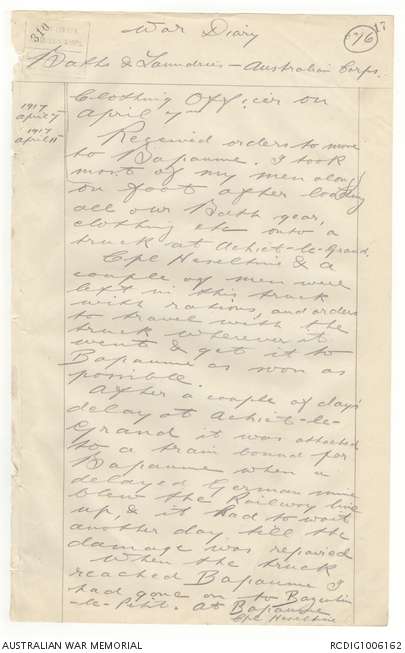 War Diary
310
76
17
Baths & Laundries – Australian Corps.
1917
April 7
Clothing Officer on
April 7
1917
April 11
Received orders to move
to Bapaume. I took
most of my men along
on foot after loading
all our Bath gear,
clothing etc onto a
truck at Achiet-le-Grand.
Cpl Heseltine & a
couple of men were
left in this truck
with rations, and orders
to travel with the
truck wherever it
went & get it to
Bapaume as soon as
possible.
After a couple of day's
delay at Achiet-le-
Grand it was attached
to a train bound for
Bapaume when a
delayed German mine
blew the Railway line
up, & it had to wait
another day till the
damage was repaired
When the truck
reached Bapaume I
had gone on to Bazentin
-le-Petit. At Bapaume
Cpl Heseltine
AUSTRALIAN WAR MEMORIAL
RCDIG1006162